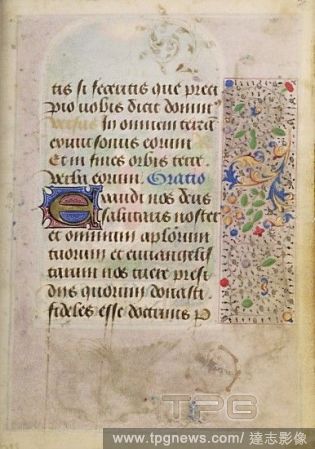 tis si feceritis que preci
pio vobis dicit domin⁹
versus In omnem terrã
exivit sonus eorum
Et in fines orbis terre
verba eorum. Oratio
Exaudi nos deus
salutaris noster
et omnium ap̃lorum
tuorum et euangelis
tarum nos tuere presi
diis quorum donasti
fideles esse doctrinis p
TPG
www.tpgnews.com/ 達志影像